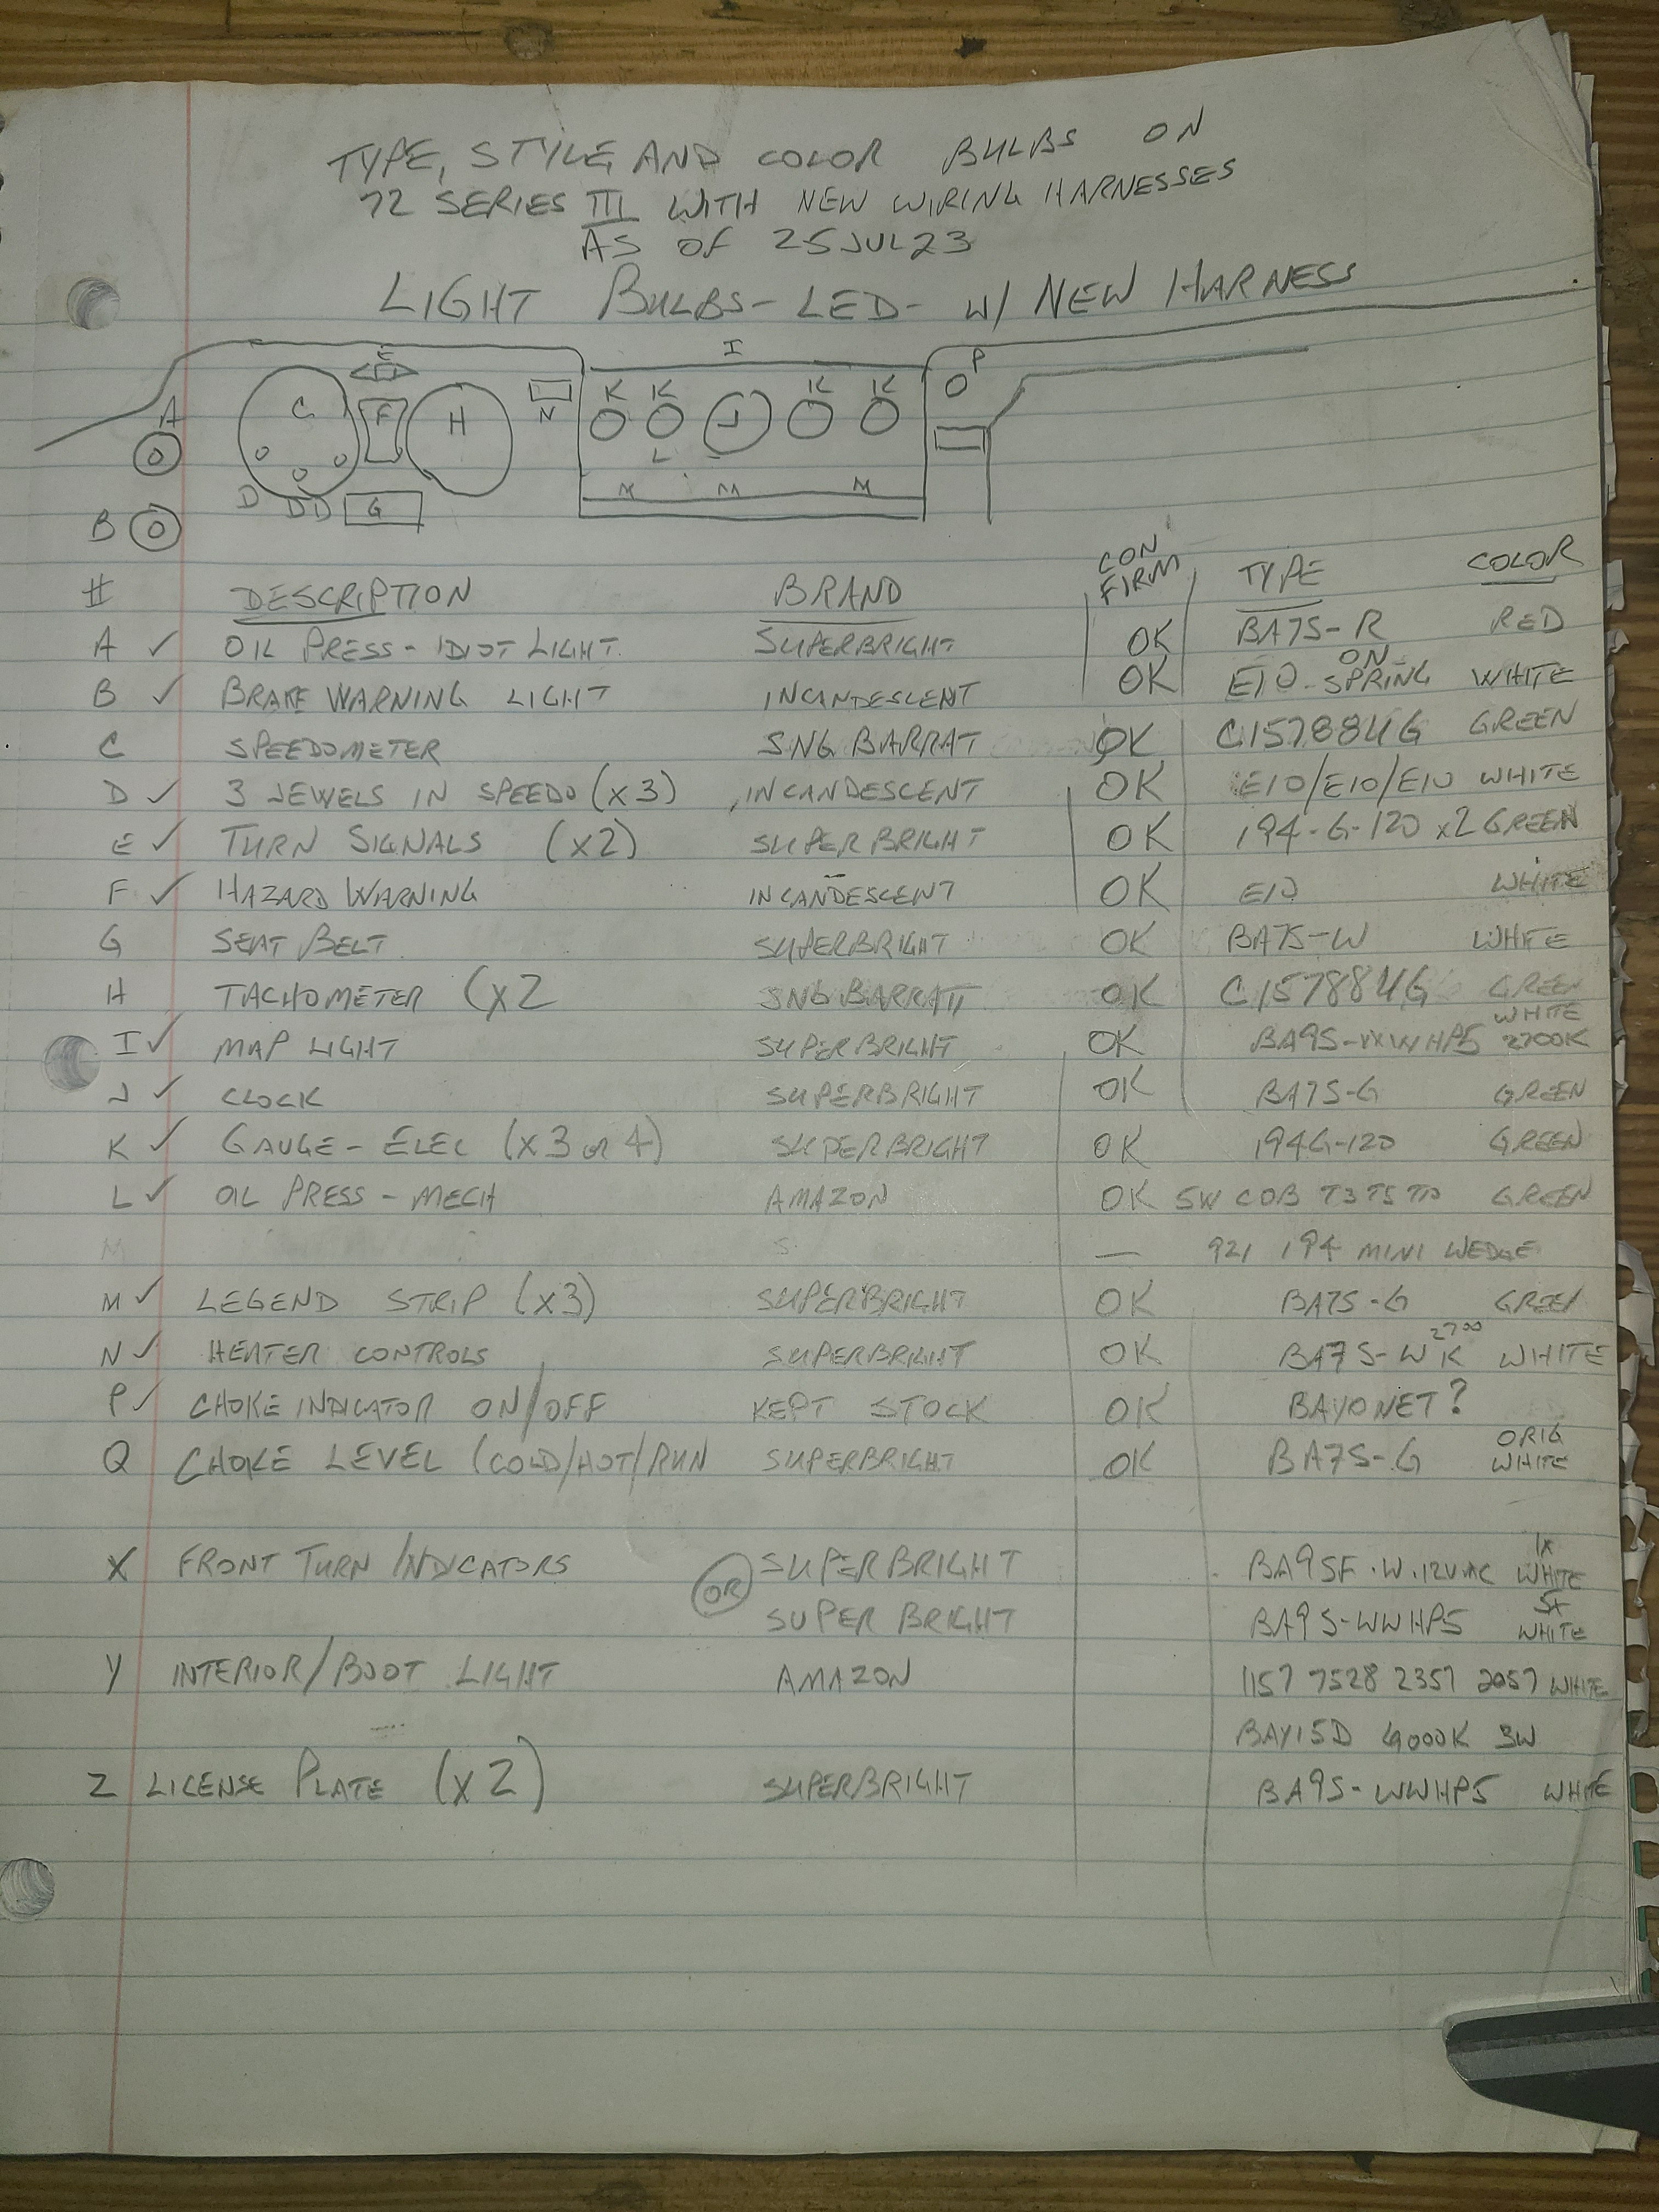 TYPE, STYLE AND COLOR BULBS ON
72 SERIES III WITH NEW WIRING HARNESSES
AS OF 25JUL23
LIGHT BULBS - LED - W/ NEW HARNESS
E I P
A C F H N K K J K K
L
M M M
D DD G
B
# DESCRIPTION BRAND CON FIRM TYPE COLOR
A ✓ OIL PRESS - IDIOT LIGHT SUPERBRIGHT OK BA7S-R RED
B ✓ BRAKE WARNING LIGHT INCANDESCENT OK E10 ON SPRING WHITE
C SPEEDOMETER SNG BARRAT OK C15788UG GREEN
D ✓ 3 JEWELS IN SPEEDO (x3) INCANDESCENT OK E10/E10/E10 WHITE
E ✓ TURN SIGNALS (x2) SUPERBRIGHT OK 194-G-120 x2 GREEN
F ✓ HAZARD WARNING INCANDESCENT OK E10 WHITE
G SEAT BELT SUPERBRIGHT OK BA7S-W WHITE
H TACHOMETER (x2 SNG BARRATT OK C15788UG GREEN
I ✓ MAP LIGHT SUPERBRIGHT OK WHITE 2700K
J ✓ CLOCK SUPERBRIGHT OK BA7S-G GREEN
K ✓ GAUGE - ELEC (x3 OR 4) SUPERBRIGHT OK 194G-120 GREEN
L ✓ OIL PRESS - MECH AMAZON OK 5W COB T3 T5 T10 GREEN
M S — 921 194 MINI WEDGE
M ✓ LEGEND STRIP (x3) SUPERBRIGHT OK BA7S-G GREEN
N ✓ HEATER CONTROLS SUPERBRIGHT OK BA7S-W 2700 K WHITE
P ✓ CHOKE INDICATOR ON/OFF KEPT STOCK OK BAYONET?
Q CHOKE LEVEL (COLD/HOT/RUN SUPERBRIGHT OK BA7S-G ORIG WHITE
X FRONT TURN INDICATORS OR SUPERBRIGHT BA9SF-W-12VAC 1x WHITE
SUPER BRIGHT BA9S-WWHP5 5x WHITE
Y INTERIOR/BOOT LIGHT AMAZON 1157 7528 2357 2057 WHITE
BAY15D 3W
Z LICENSE PLATE (x2) SUPERBRIGHT BA9S-WWHP5 WHITE